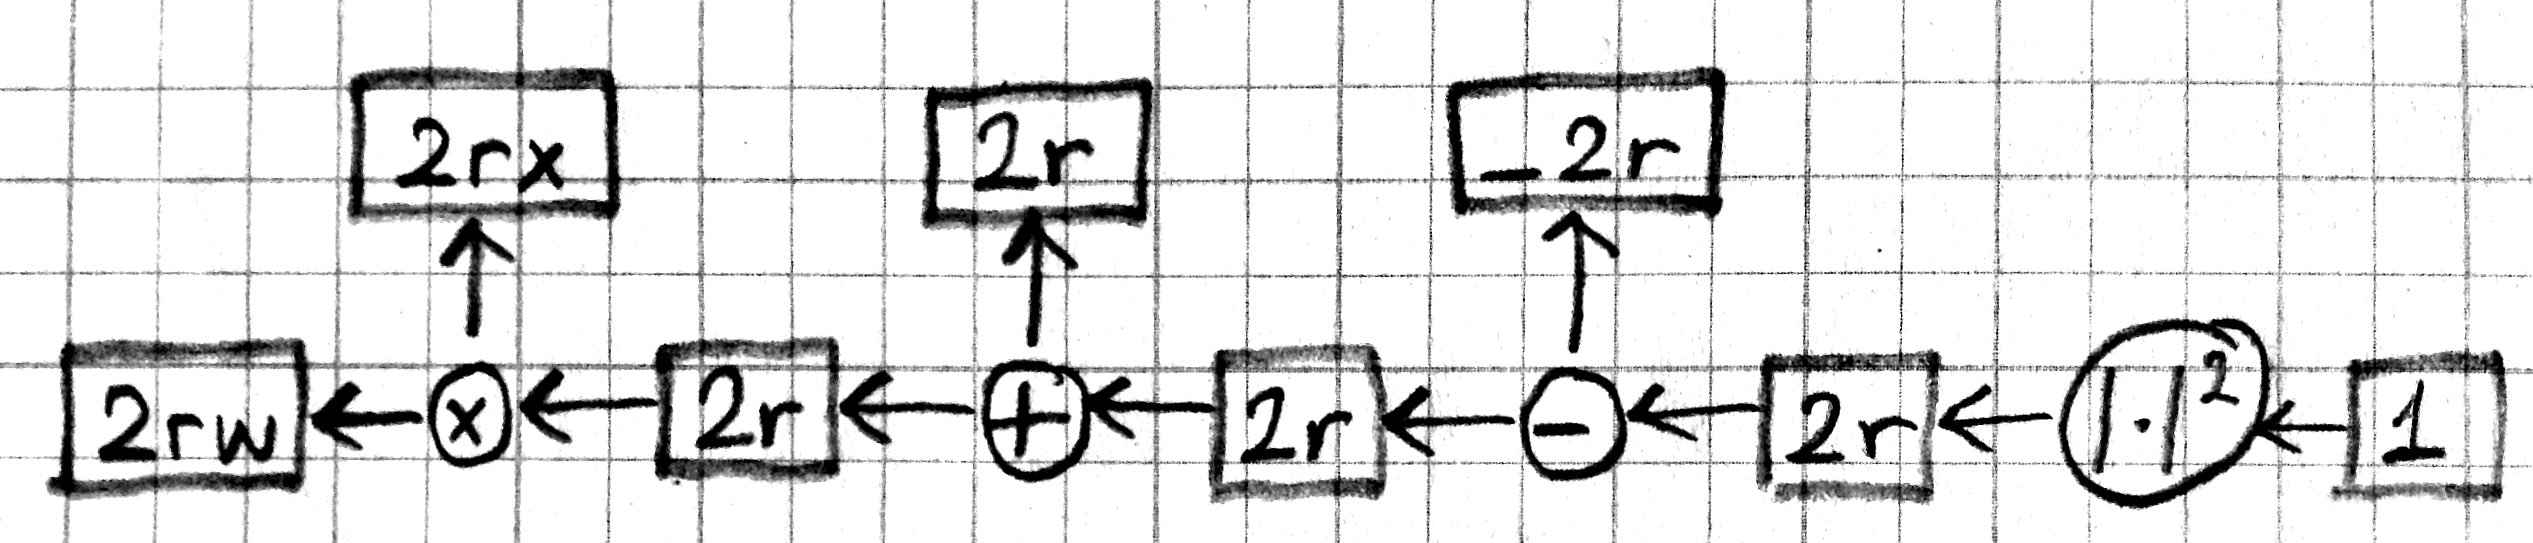 2rx 2r -2r
2rw ← × ← 2r ← + ← 2r ← - ← 2r ← |·|² ← 1